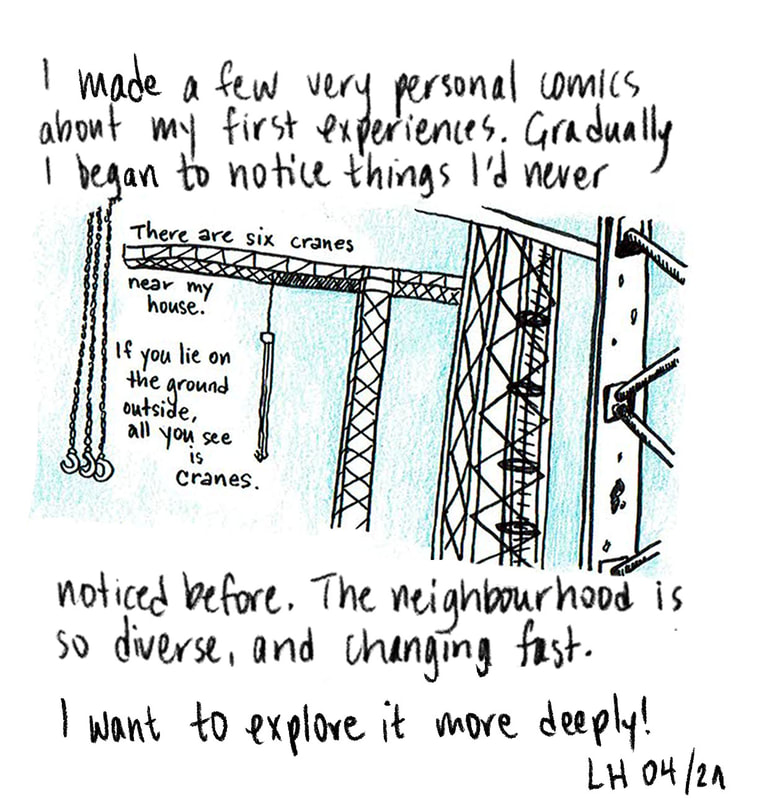 I made a few very personal comics
about my first experiences. Gradually
I began to notice things I'd never
There are six cranes
near my
house.
If you lie on
the ground
outside,
all you see
is
cranes.
noticed before. The neighbourhood is
so diverse, and changing fast.
I want to explore it more deeply!
LH 04/21